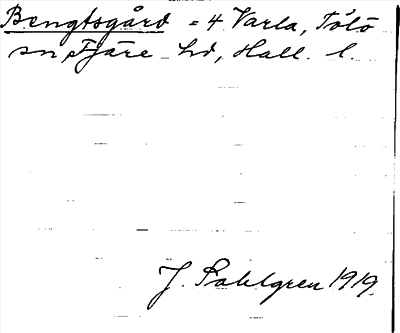 Bengtsgård = 4 Varla, Tölö
sn, Fjäre hd, Hall. l.
J. Sahlgren 1919.